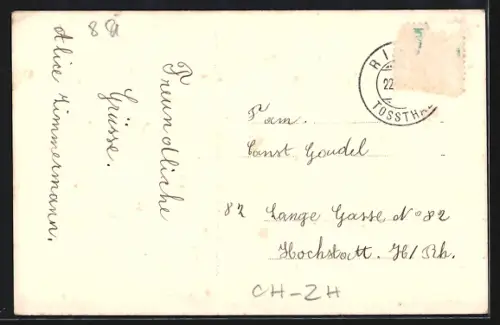 8
Freundliche
Grüsse.
Alice Zimmermann.
RI
22
TÖSSTH
Fam.
Ernst Goudel
82 Lange Gasse No 82
Hochstatt. H/Rh.
CH-ZH